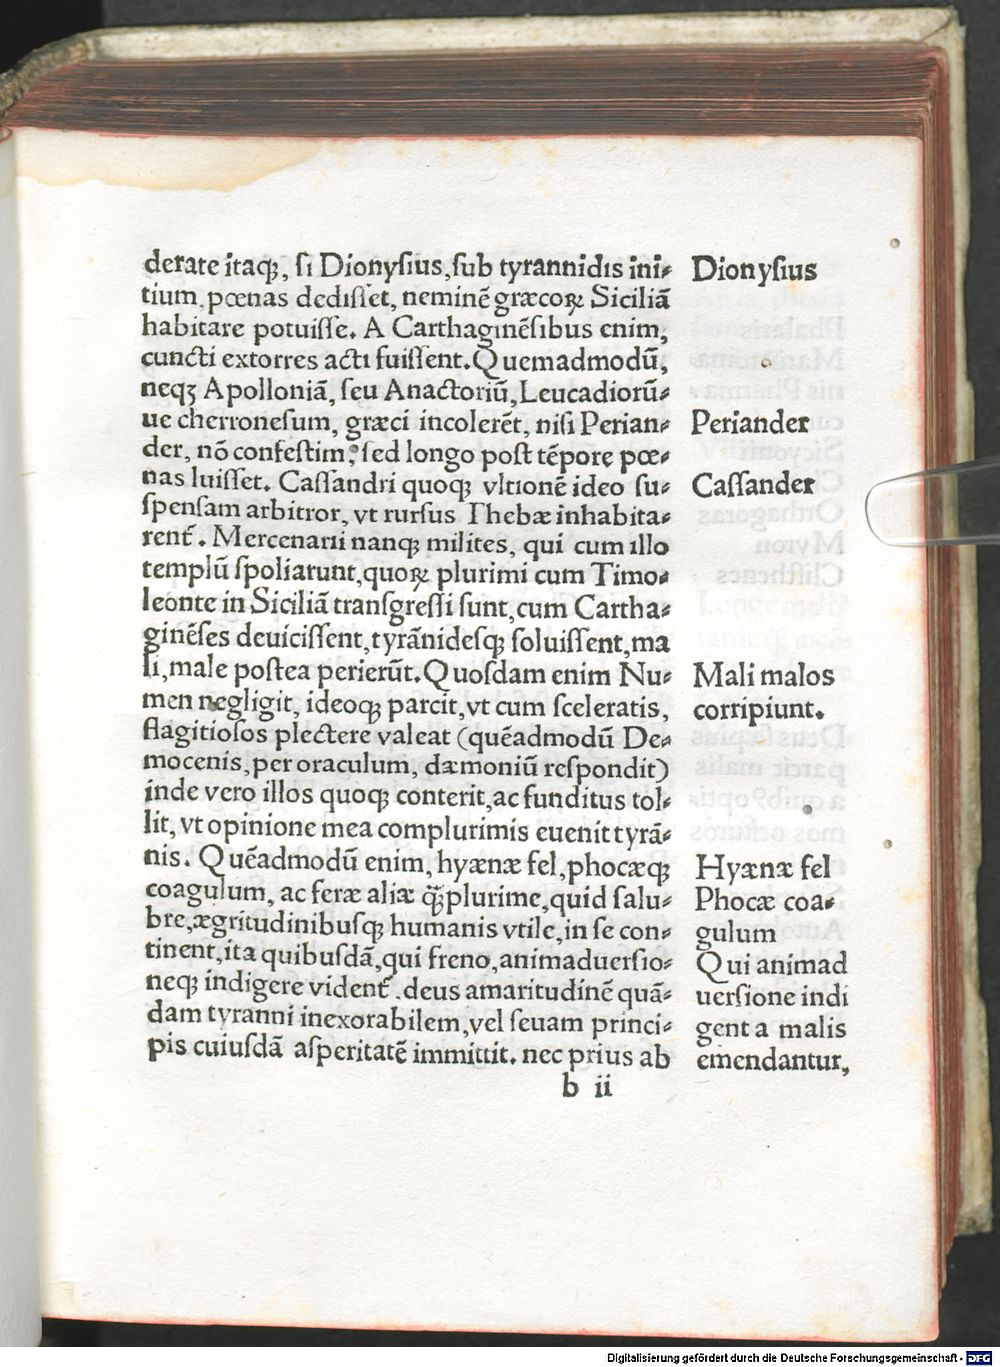 derate itaqꝫ, ſi Dionyſius, ſub tyrannidis ini⸗
tium, pœnas dediſſet, neminẽ græcoꝝ Siciliã
habitare potuiſſe. A Carthaginẽſibus enim,
cuncti extorres acti fuiſſent. Quemadmodũ,
neqꝫ Apolloniã, ſeu Anactoriũ, Leucadiorũ⸗
ue cherroneſum, græci incolerẽt, niſi Perian⸗
der, nõ confeſtim, ſed longo poſt tẽpore pœ⸗
nas luiſſet. Caſſandri quoqꝫ vltionẽ ideo ſu⸗
ſpenſam arbitror, vt rurſus Thebæ inhabita⸗
rent᷑. Mercenarii nanqꝫ milites, qui cum illo
templũ ſpoliarunt, quoꝝ plurimi cum Timo⸗
leonte in Siciliã tranſgreſſi ſunt, cum Cartha⸗
ginẽſes deuiciſſent, tyrãnideſqꝫ ſoluiſſent, ma
li, male poſtea perierũt. Quoſdam enim Nu⸗
men negligit, ideoqꝫ parcit, vt cum ſceleratis,
flagitioſos plectere valeat (quẽadmodũ De⸗
mocenis, per oraculum, dæmoniũ reſpondit)
inde vero illos quoqꝫ conterit, ac funditus tol⸗
lit, vt opinione mea complurimis euenit tyrã⸗
nis. Quẽadmodũ enim, hyænæ fel, phocæqꝫ
coagulum, ac feræ aliæ q̃ꝫplurime, quid ſalu⸗
bre, ægritudinibuſqꝫ humanis vtile, in ſe con⸗
tinent, ita quibuſdã, qui freno, animaduerſio⸗
neqꝫ indigere vident᷑. deus amaritudinẽ quã⸗
dam tyranni inexorabilem, vel ſeuam princi⸗
pis cuiuſdã aſperitatẽ immittit. nec prius ab
b ii
Dionyſius
Periander
Caſſander
Mali malos
corripiunt.
Hyænæ fel
Phocæ coa⸗
gulum
Qui animad
uerſione indi
gent a malis
emendantur,
Digitalisierung gefördert durch die Deutsche Forschungsgemeinschaft - DFG